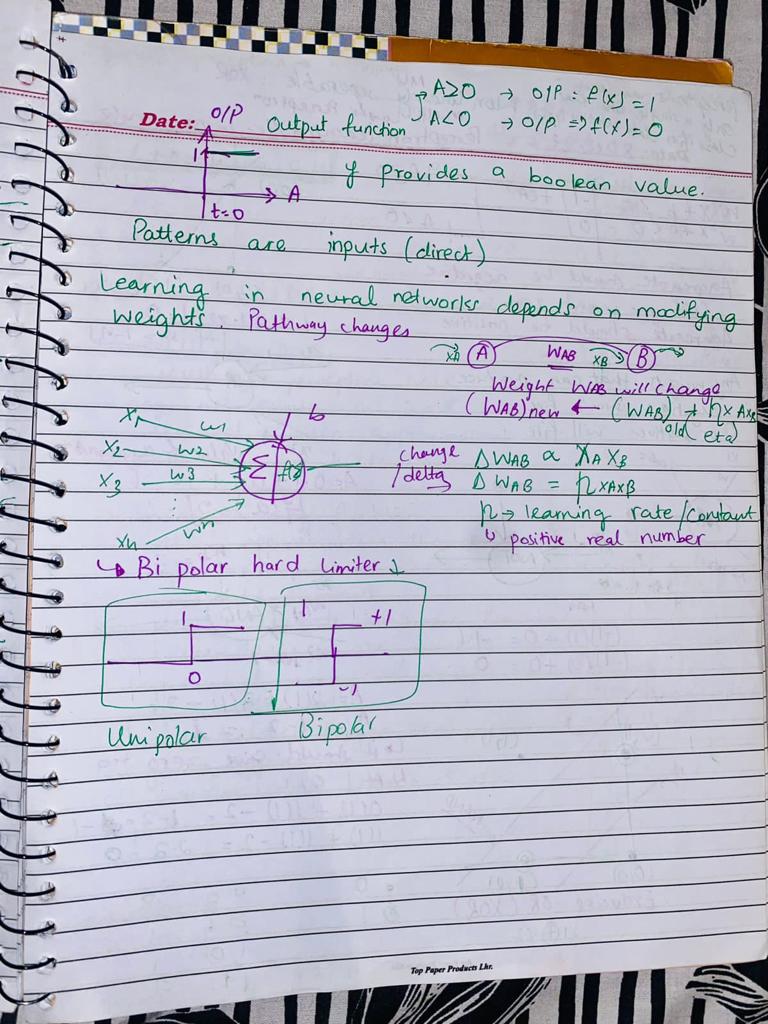 A≥0 → O/P : f(x) = 1
Date: O/P Output function A<0 → O/P ⇒ f(x) = 0
1
A
t=0
y provides a boolean value.
Patterns are inputs (direct)
Learning in neural networks depends on modifying
weights. Pathway changes
xA A WAB xB B
Weight WAB will change
(WAB)new ← (WAB)old + η xAxB
(eta)
x1 w1 b
x2 w2
x3 w3
⋮
xn wn
Σ f(x)
change / delta
Δ WAB ∝ XA XB
Δ WAB = η xAxB
η → learning rate/constant
↳ positive real number
↳ Bi polar hard limiter ↓
1 0
1 +1 -1
Unipolar Bipolar
Top Paper Products Lhr.